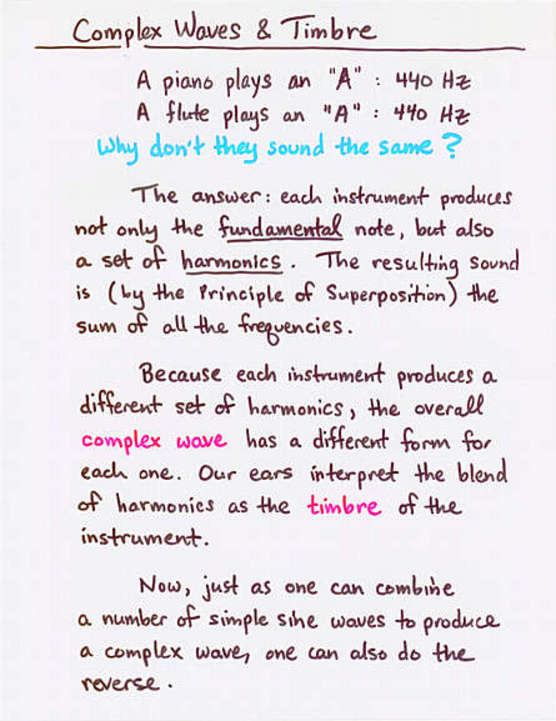 Complex Waves & Timbre
A piano plays an "A" : 440 Hz
A flute plays an "A" : 440 Hz
Why don't they sound the same?
The answer: each instrument produces
not only the fundamental note, but also
a set of harmonics. The resulting sound
is (by the Principle of Superposition) the
sum of all the frequencies.
Because each instrument produces a
different set of harmonics, the overall
complex wave has a different form for
each one. Our ears interpret the blend
of harmonics as the timbre of the
instrument.
Now, just as one can combine
a number of simple sine waves to produce
a complex wave, one can also do the
reverse.